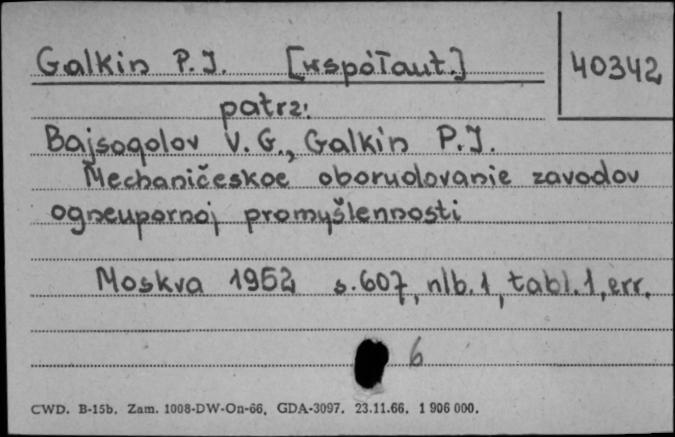 Galkin P.I. [współaut.]
40342
patrz:
Bajsogolov V.G., Galkin P.I.
Mechaničeskoe oborudovanie zavodov
ogneupornoj promyšlennosti
Moskva 1952 s.607, nlb.1, tabl.1, err.
6
CWD. B-15b. Zam. 1008-DW-On-66. GDA-3097. 23.11.66. 1 906 000.